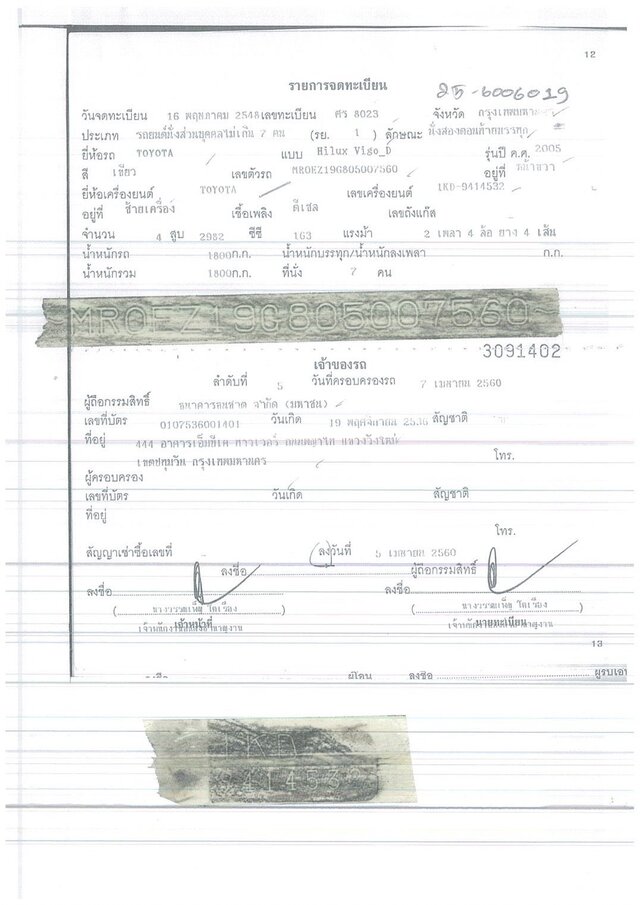 12
รายการจดทะเบียน
วันจดทะเบียน 16 พฤษภาคม 2548 เลขทะเบียน ศร 8023 จังหวัด กรุงเทพมหานคร
ประเภท รถยนต์นั่งส่วนบุคคลไม่เกิน 7 คน (รย. 1 ) ลักษณะ นั่งสองตอนท้ายบรรทุก
ยี่ห้อรถ TOYOTA แบบ Hilux Vigo_D รุ่นปี ค.ศ. 2005
สี เขียว เลขตัวรถ MROFZ19G805007560 อยู่ที่
ยี่ห้อเครื่องยนต์ TOYOTA เลขเครื่องยนต์ 1KD-9414532
อยู่ที่ ซ้ายเครื่อง เชื้อเพลิง ดีเซล เลขถังแก๊ส
จำนวน 4 สูบ 2982 ซีซี 163 แรงม้า 2 เพลา 4 ล้อ ยาง 4 เส้น
น้ำหนักรถ 1800ก.ก. น้ำหนักบรรทุก/น้ำหนักลงเพลา ก.ก.
น้ำหนักรวม 1800ก.ก. ที่นั่ง 7 คน
MROFZ19G805007560
3091402
เจ้าของรถ
ลำดับที่ 5 วันที่ครอบครองรถ 7 เมษายน 2560
ผู้ถือกรรมสิทธิ์ ธนาคารธนชาต จำกัด (มหาชน)
เลขที่บัตร 0107536001401 วันเกิด 19 พฤศจิกายน 2536 สัญชาติ
ที่อยู่ 444 อาคารเอ็มบีเค ทาวเวอร์ ถนนพญาไท แขวงวังใหม่
เขตปทุมวัน กรุงเทพมหานคร โทร.
ผู้ครอบครอง
เลขที่บัตร วันเกิด สัญชาติ
ที่อยู่
โทร.
สัญญาเช่าซื้อเลขที่ ลงวันที่ 5 เมษายน 2560
ลงชื่อ ผู้ถือกรรมสิทธิ์
ลงชื่อ ลงชื่อ
เจ้าหน้าที่ นายทะเบียน
13
ลงชื่อ ผู้โอน ลงชื่อ ผู้รับโอน
1KD
9414532